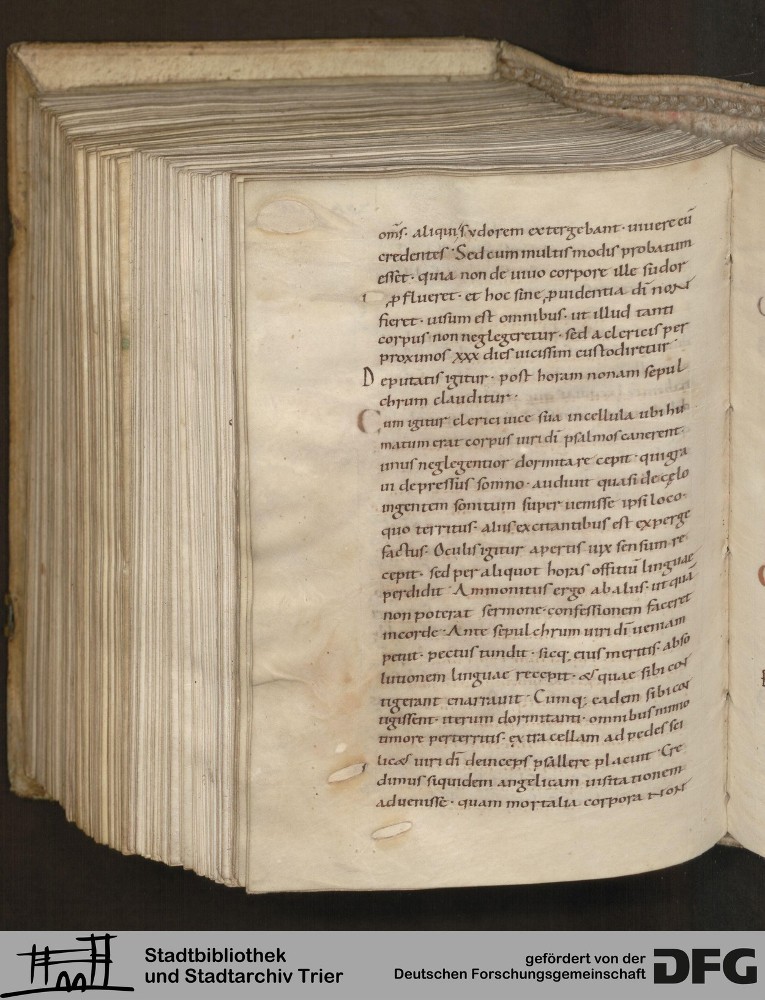 om̅s. aliqui sudorem extergebant. uiuere eū
credentes. Sed cum multis modis probatum
esset. quia non de uiuo corpore ille sudor
ꝓflueret. et hoc sine ꝓuidentia dī non
fieret. uisum est omnibus. ut illud tanti
corpus non neglegeretur. sed a clericis per
proximos xxx dies uicissim custodiretur
Deputatis igitur. post horam nonam sepul
chrum clauditur.
Cum igitur clerici uice sua in cellula ubi hu
matum erat corpus uiri dī psalmos canerent.
unus neglegentior dormitare cepit. qui gra
ui depressus somno. audiuit quasi de cęlo
ingentem sonitum super uenisse ipsi loco.
quo territus. aliis excitantibus est experge
factus. Oculis igitur apertis uix sensum re
cepit. sed per aliquot horas offitiū linguae
perdidit. Ammonitus ergo ab aliis. ut quā
non poterat sermone. confessionem faceret
in corde. Ante sepulchrum uiri dī ueniam
petiit. pectus tundit. sicq; eius meritis. abso
lutionem linguae recepit. & quae sibi con
tigerant enarrauit. Cumq; eadem sibi con
tigissent. iterum dormitanti. omnibus nimio
timore perterritis. extra cellam ad pedes sci
lic& uiri dī deinceps psallere placuit. Cre
dimus siquidem angelicam uisitationem
aduenisse. quam mortalia corpora non
Stadtbibliothek
und Stadtarchiv Trier
gefördert von der
Deutschen Forschungsgemeinschaft
DFG